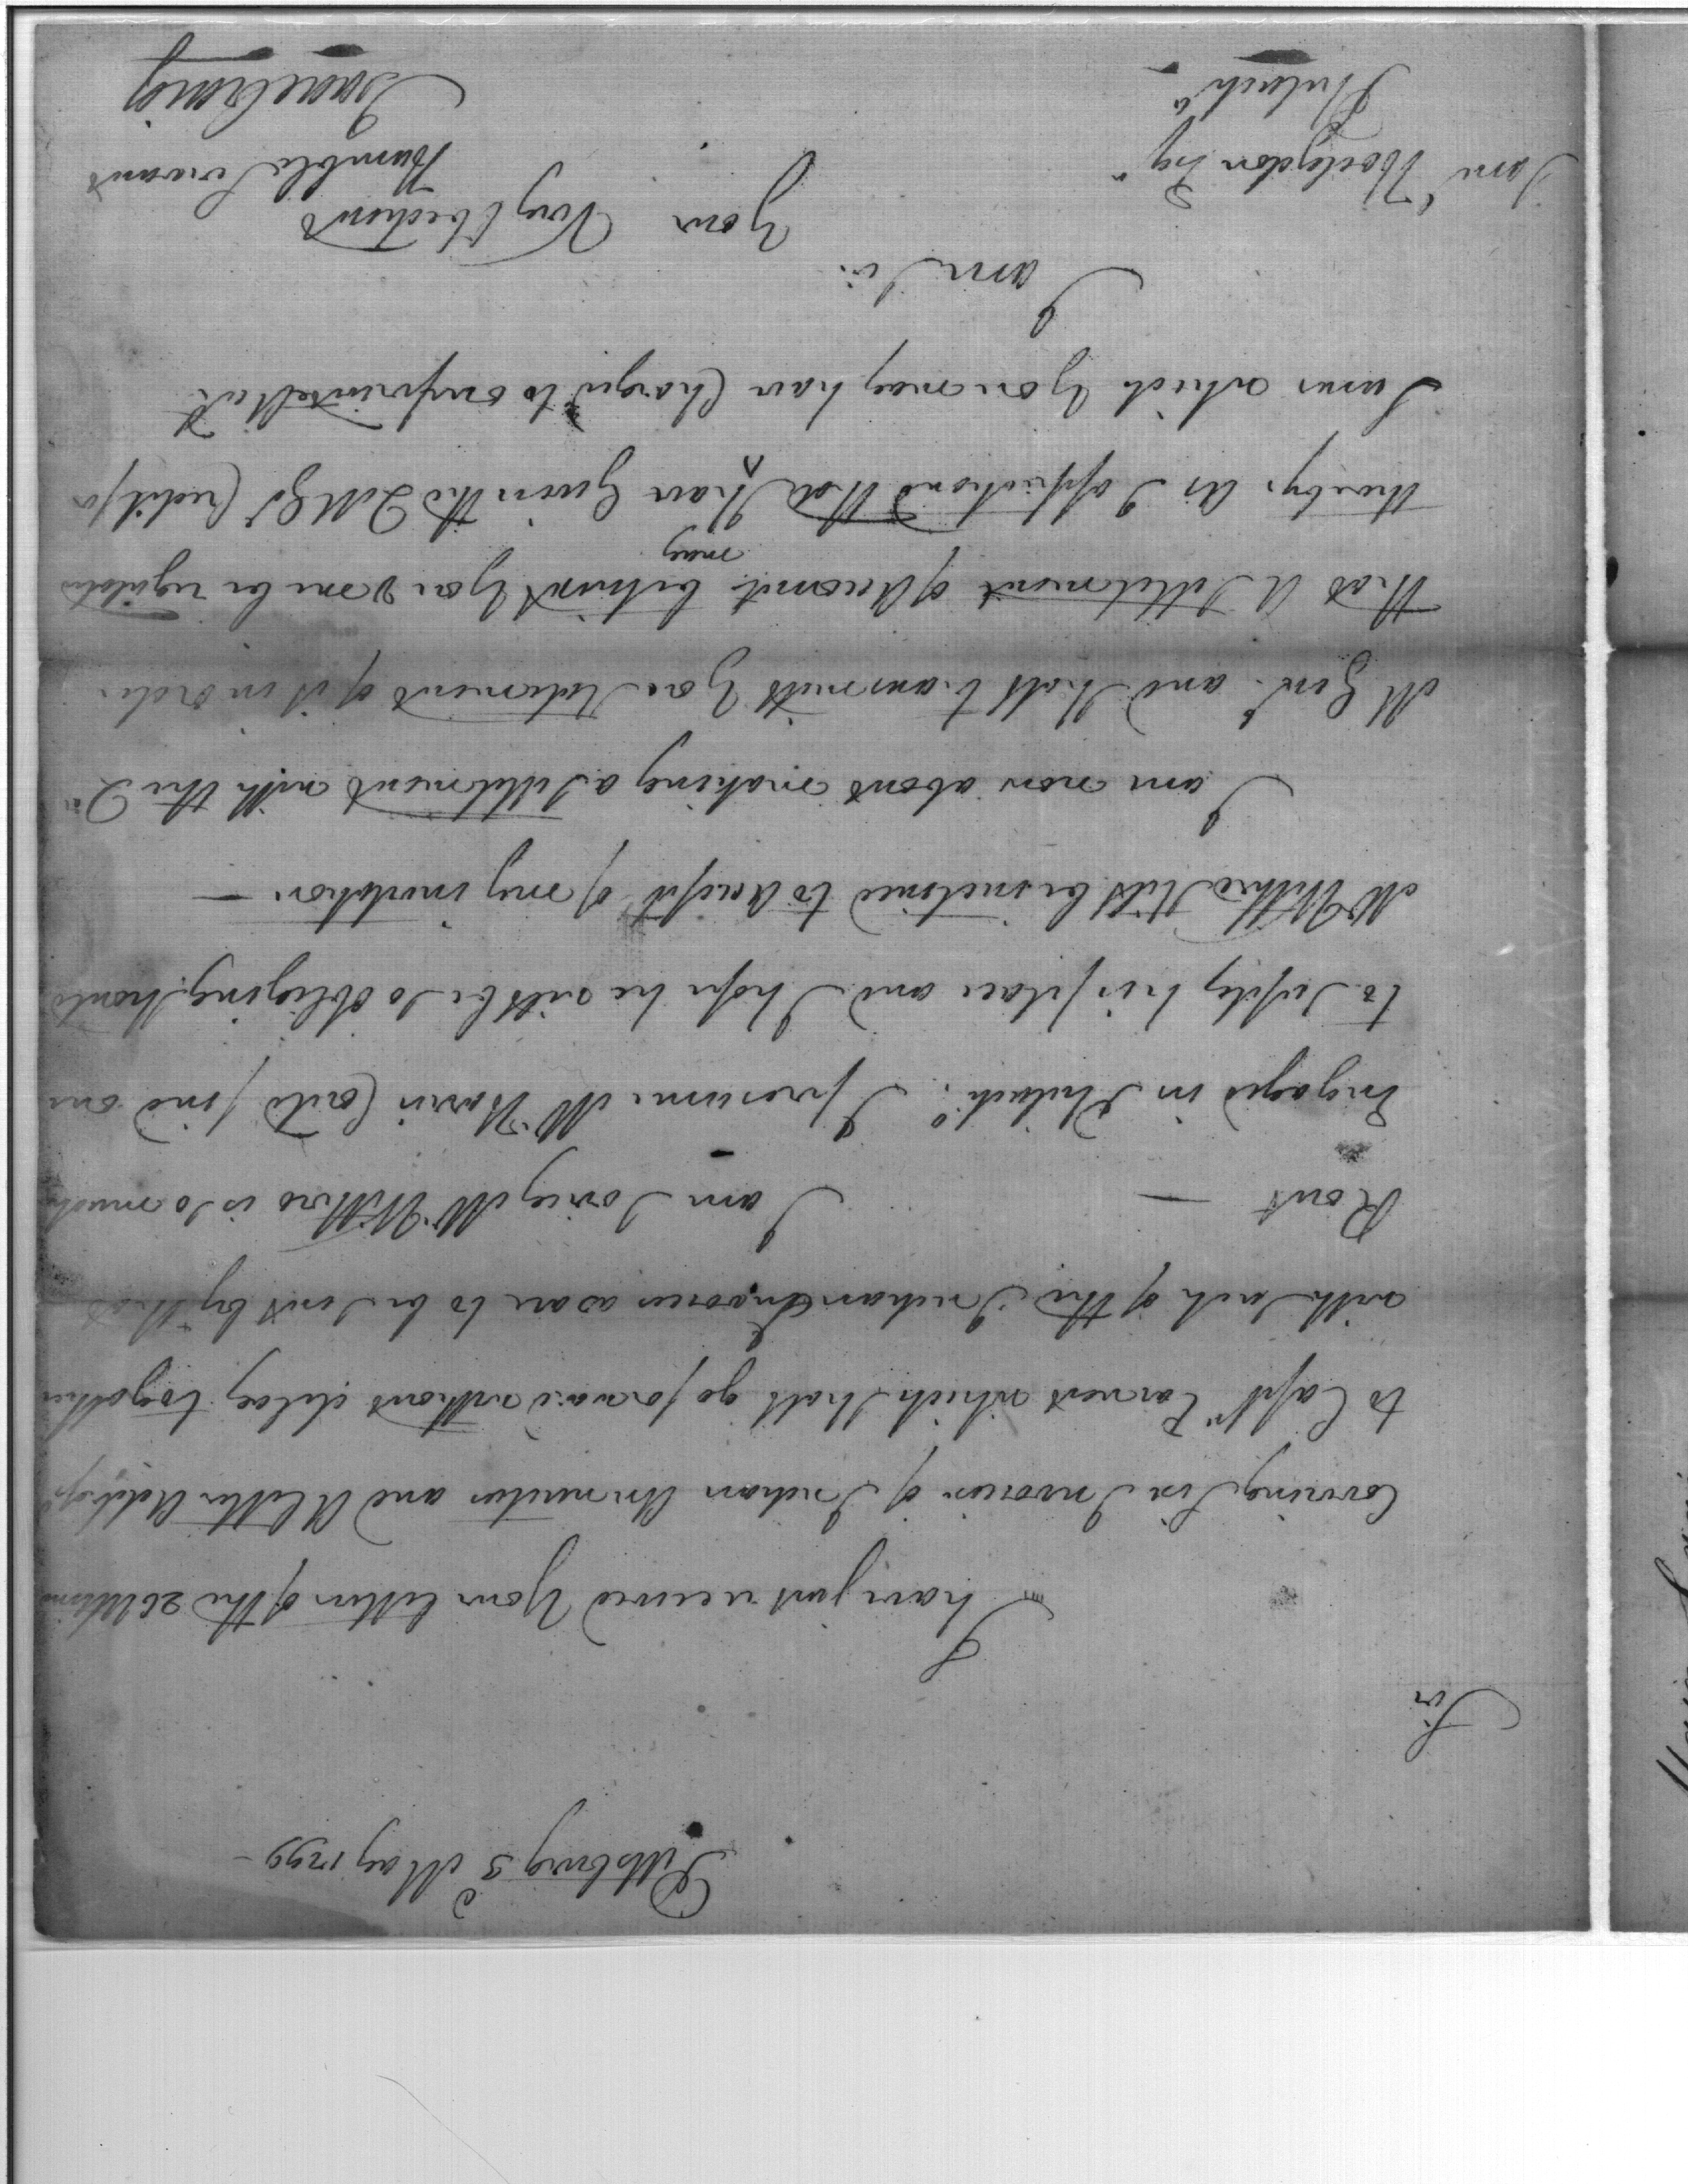 Pittsburg 3d May 1799 -
Sir
I have just received Your letter of the 26 Ultimo
Covering Six Invoices of Indian Annuities and A letter Address'd
to Capt Vance which shall go forward without delay together
with such of the Indian Invoices as are to be sent by that
Rout — I am Sorry Mr Wilkins is So much
Engaged in Philada. I presume Mr Harris Could find one
to Suply his place and I hope he will be So Obliging, should
Mr Wilkins Still be inclined to Accept of my invitation —
I am now about making a Settlement with the Qr
M Genl. and shall transmitt You Statement of it in order
That A Settlement of Accounts betwixt You & me be regulated
may
thereby. As I apprehend that have Given the Q M Gl Credit for
Sums which You may have Charged to
I am Sir
Your Very Obedient
Humble Servant
Isaac Craig
Saml Hodgdon Esqr
Philada